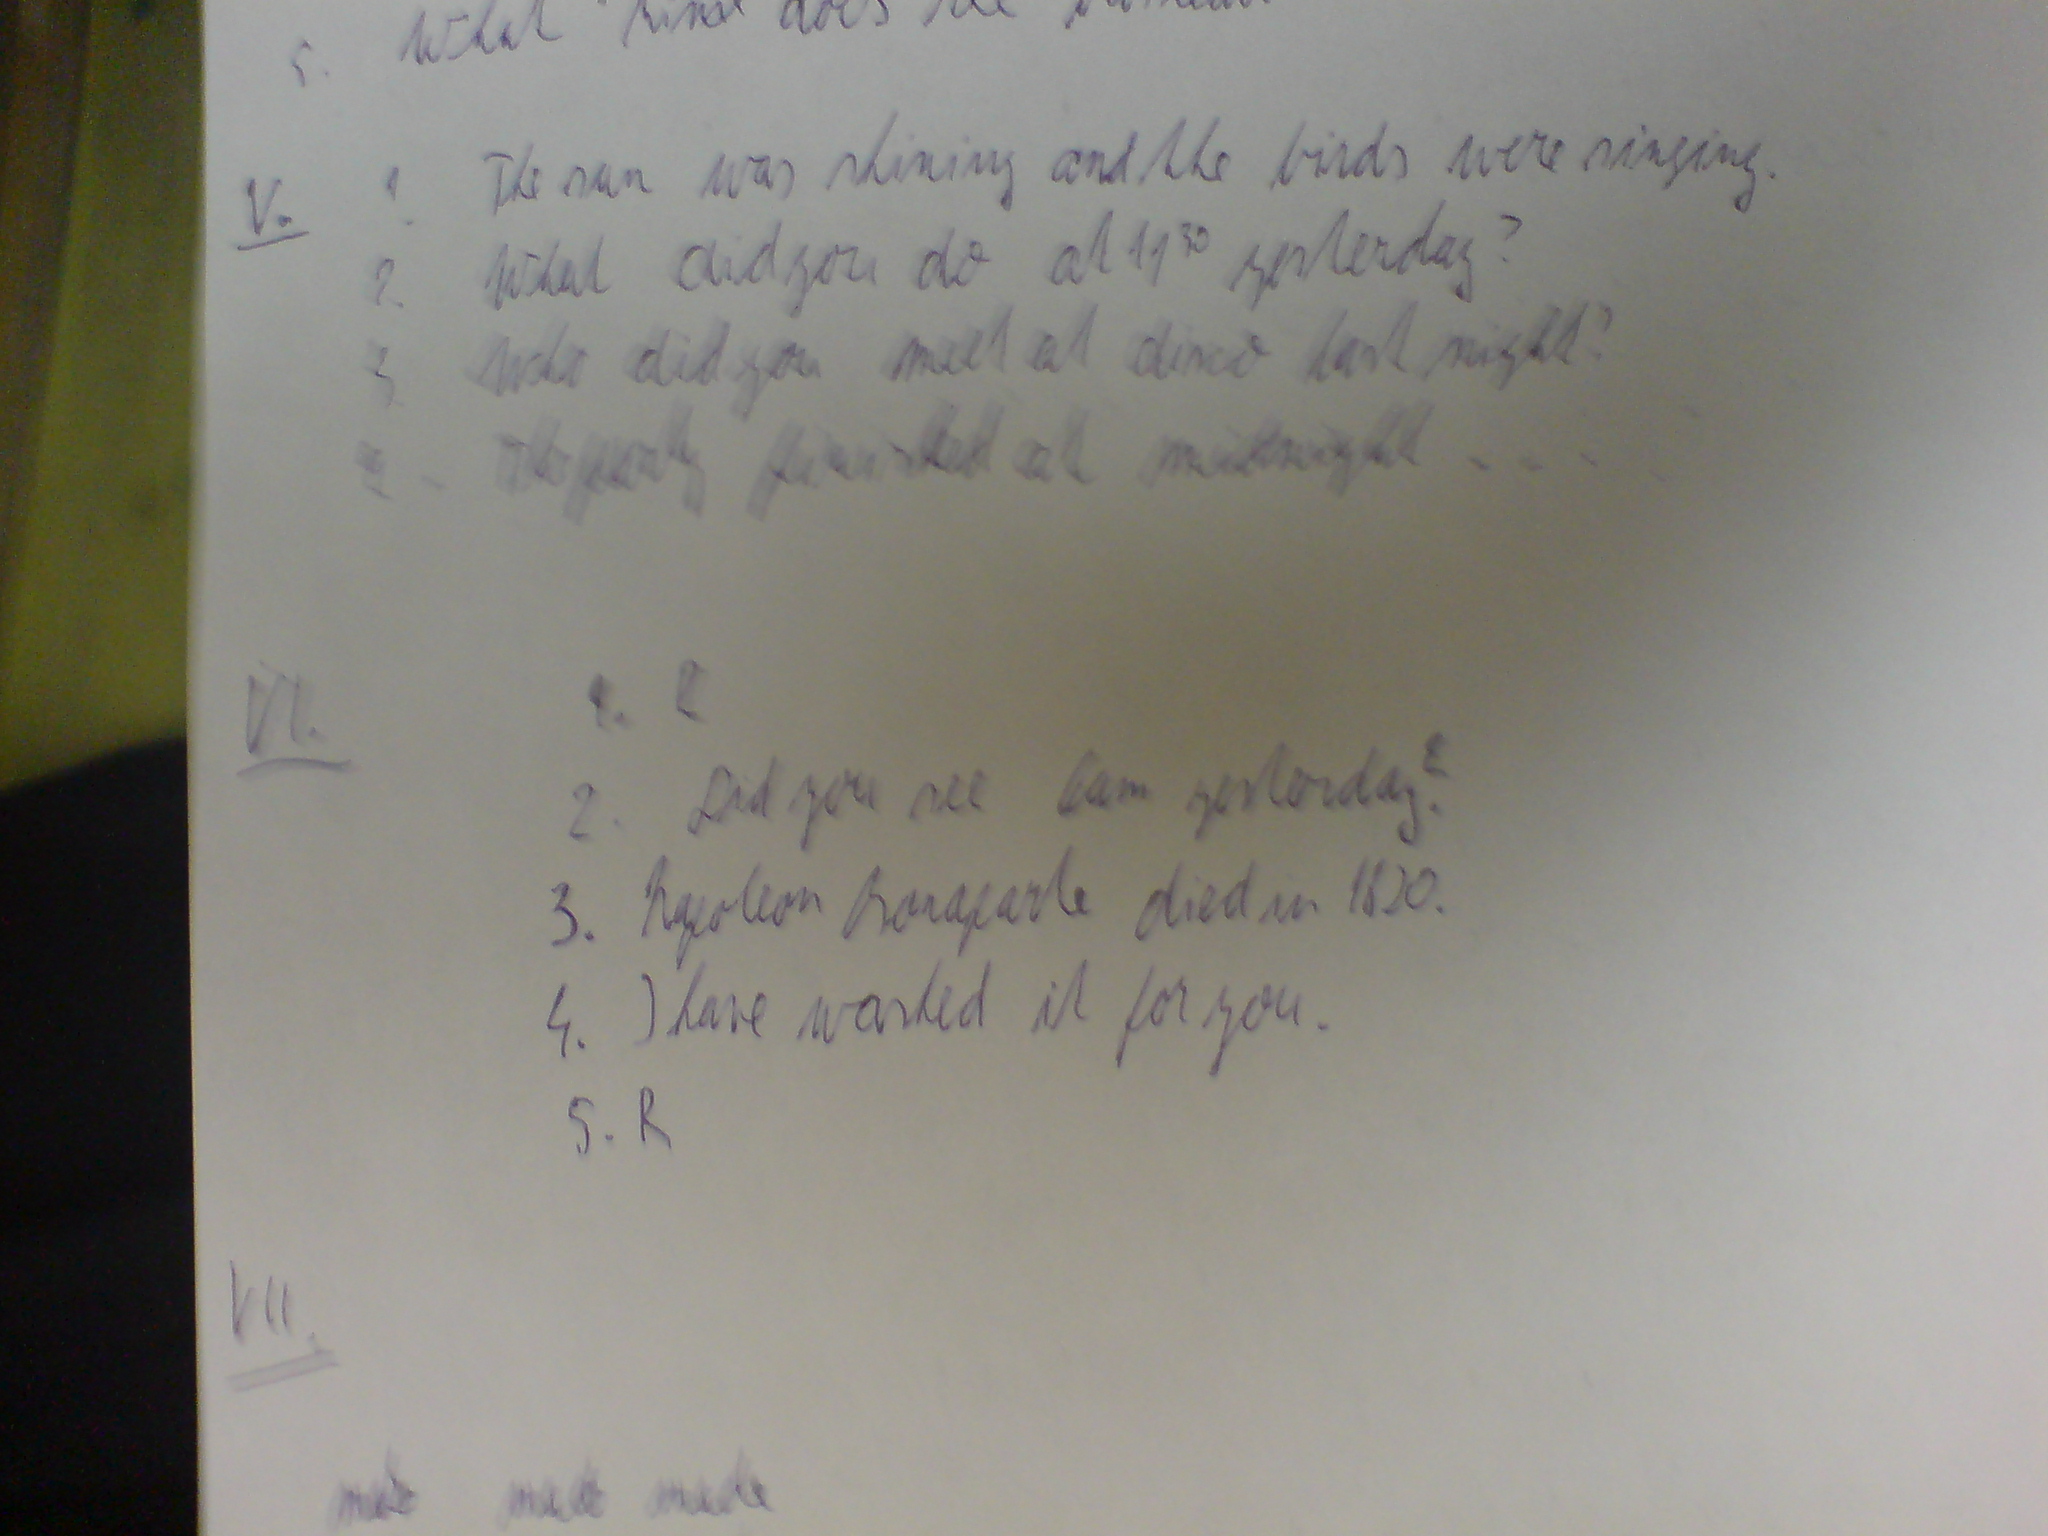 5. What does
V. 1. The sun was shining and the birds were singing.
2. What did you do at 11³⁰ yesterday?
3. Who did you meet at disco last night?
4. The party finished at midnight . . .
VI. 1. R
2. Did you see Cam yesterday?
3. Napoleon Bonaparte died in 1820.
4. I have washed it for you.
5. R
VII.
make made made